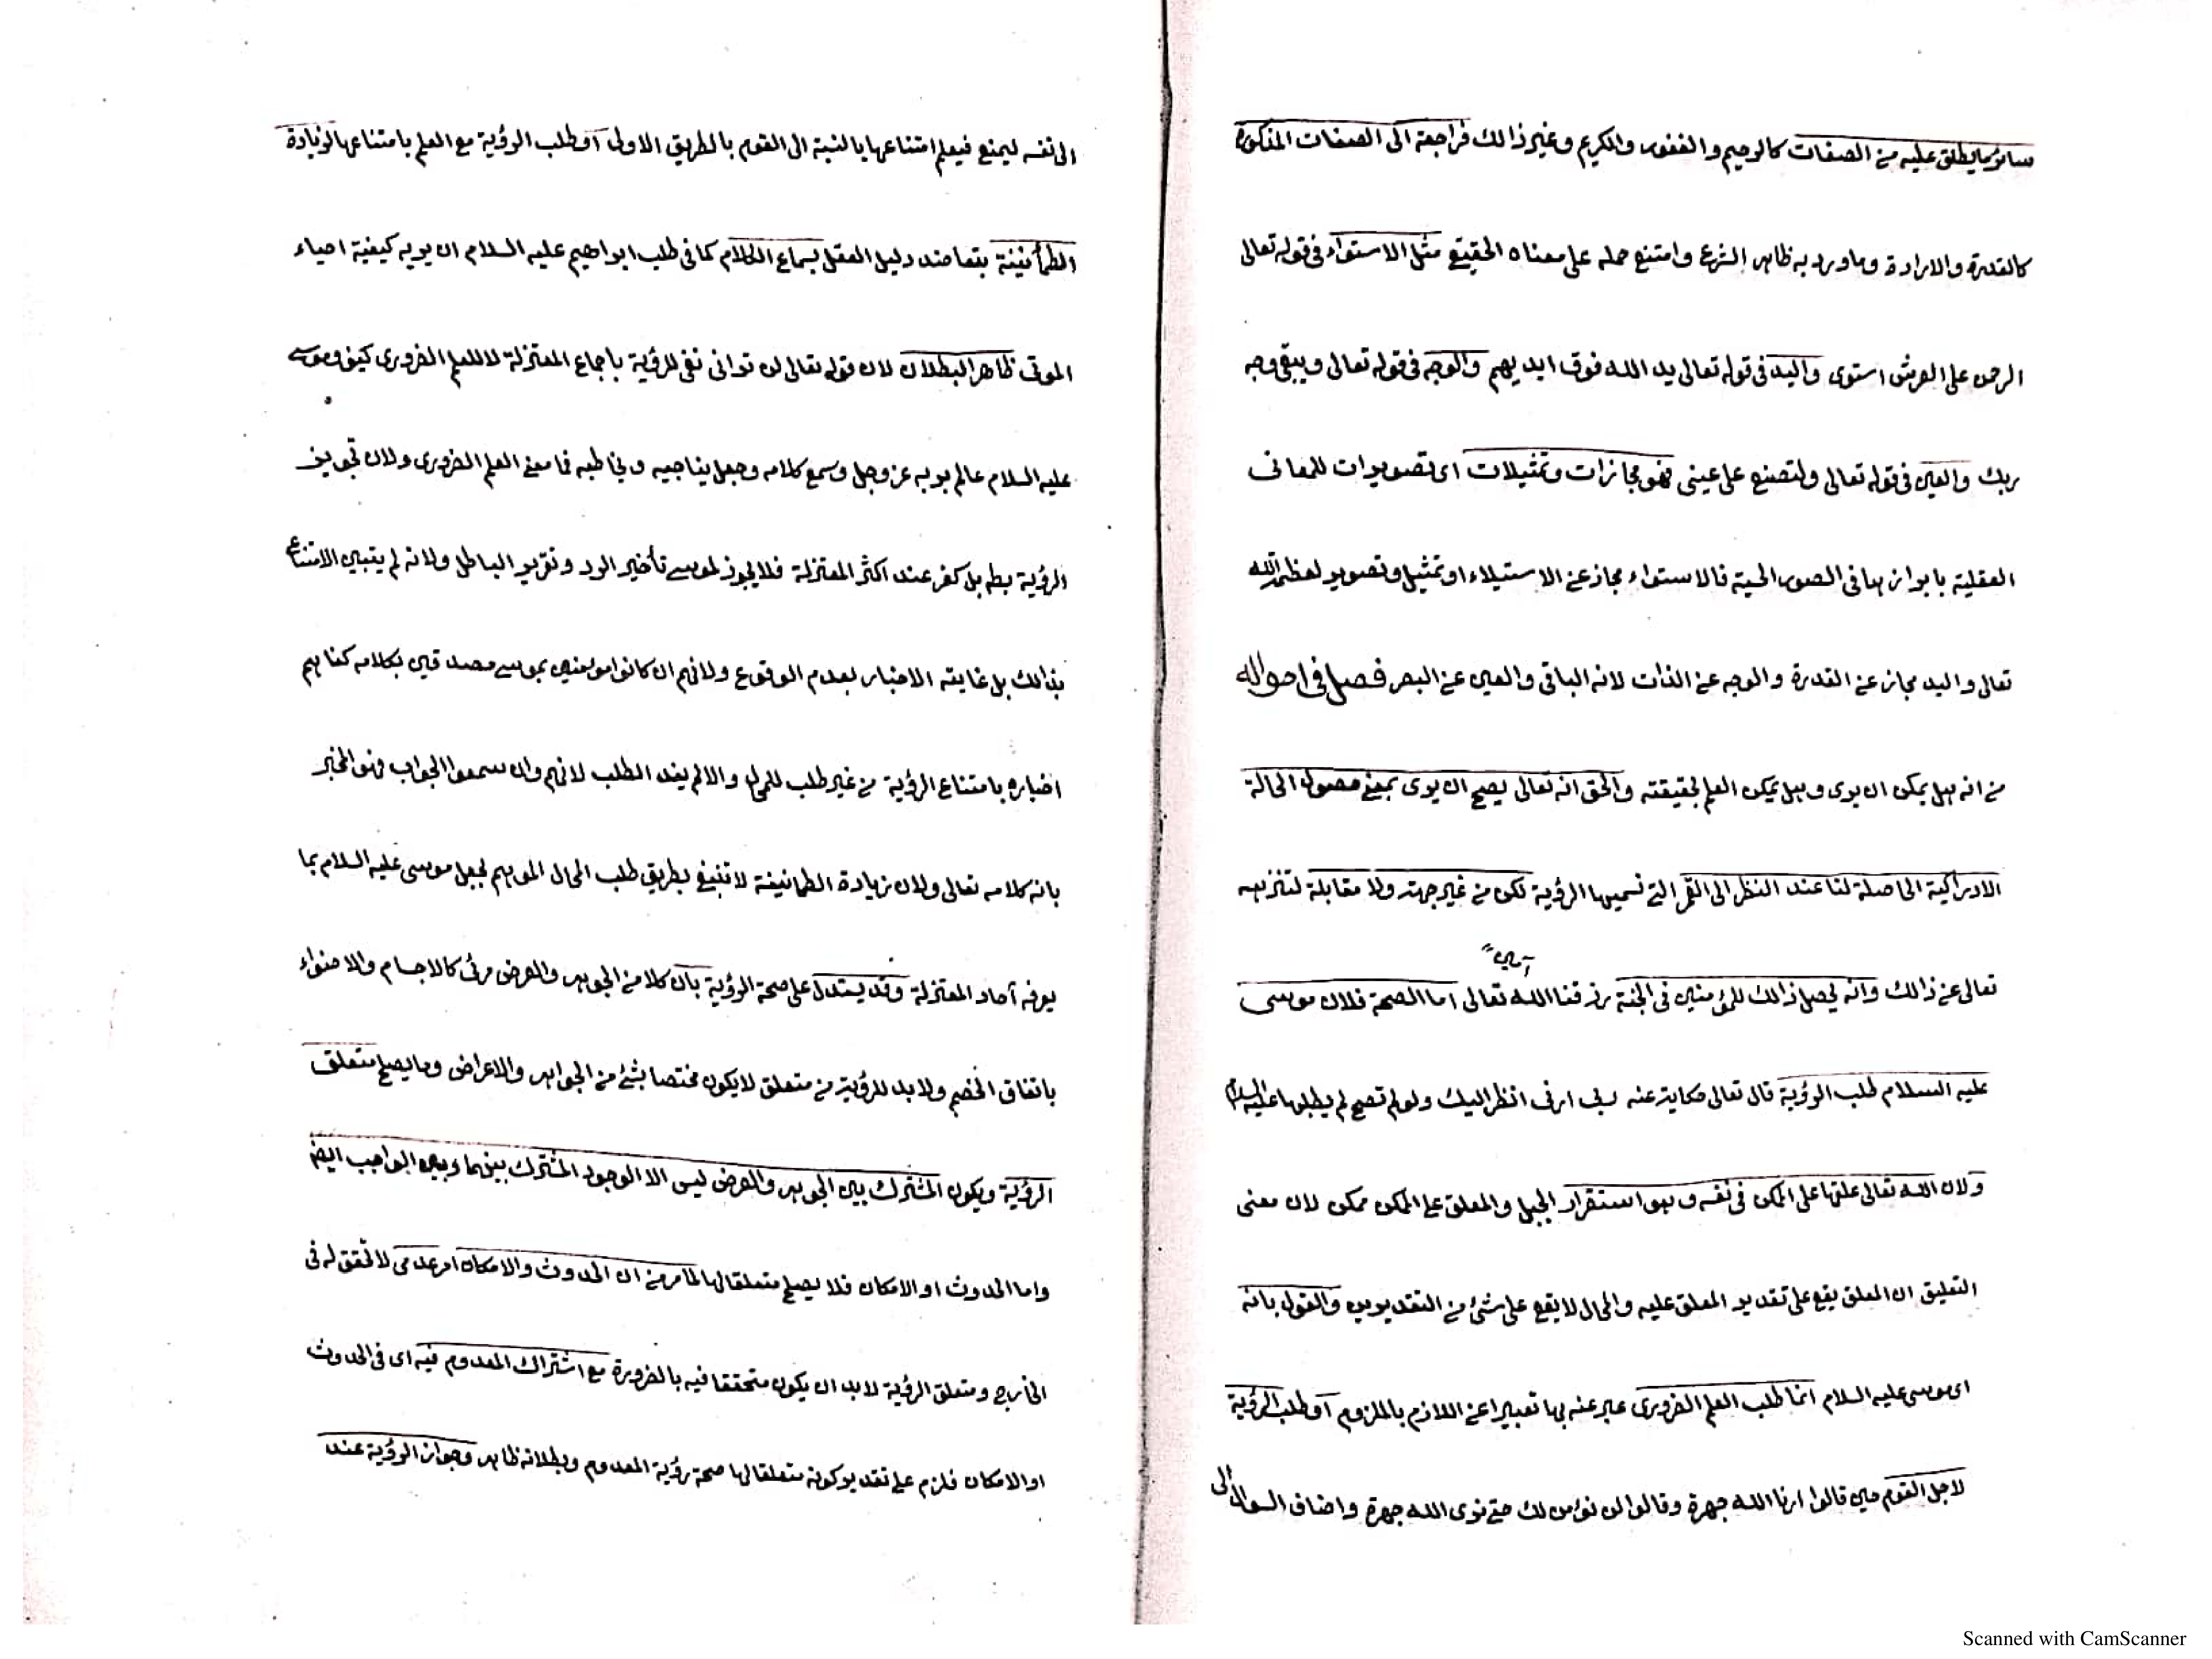 سائر ما يطلق عليه من الصفات كالرحيم والغفور والكريم وغير ذالك فراجعة الى الصفات المذكورة
كالقدرة والارادة وما ورد به ظاهر الشرع وامتنع حمله على معناه الحقيقى مثل الاستواء فى قوله تعالى
الرحمن على العرش استوى واليد فى قوله تعالى يد الله فوق ايديهم والوجه فى قوله تعالى ويبقى وجه
ربك والعين فى قوله تعالى ولتصنع على عينى فهو مجازات وتمثيلات اى تصويرات للمعانى
العقلية بابرازها فى الصور الحسية فالاستواء مجاز عن الاستيلاء او تمثيل وتصوير لعظمة الله
تعالى واليد مجاز عن القدرة والوجه عن الذات لانه الباقى والعين عن البصر فصل فى احواله
من انه هل يمكن ان يرى وهل يمكن العلم بحقيقته والحق انه تعالى يصح ان يرى بمعنى حصول الحالة
الادراكية الحاصلة لنا عند النظر الى القمر التى نسميها الرؤية لكن من غير جهة ولا مقابلة لتنزهه
آمين
تعالى عن ذالك وانه يحصل ذالك للمؤمنين فى الجنة رزقنا الله تعالى اما الصحة فلان موسى
عليه السلام طلب الرؤية قال تعالى حكاية عنه رب ارنى انظر اليك ولو لم تصح لم يطلبها عليه السلام
ولان الله تعالى علقها على الممكن فى نفسه وهو استقرار الجبل والمعلق على الممكن ممكن لان معنى
التعليق ان المعلق يقع على تقدير المعلق عليه والمحال لا يقع على شئ من التقديرين والقول بانه
اى موسى عليه السلام انما طلب العلم الضرورى عبر عنه بها تعبيرا عن اللازم بالملزوم او طلب الرؤية
لاجل القوم حين قالوا ارنا الله جهرة وقالوا لن نؤمن لك حتى نرى الله جهرة واضاف السوال الى
الى نفسه ليمنع فيعلم امتناعها بالنسبة الى القوم بالطريق الاولى او طلب الرؤية مع العلم بامتناعها لزيادة
الطمأنينة بتعاضد دليل العقل بسماع الكلام كما فى طلب ابراهيم عليه السلام ان يريه كيفية احياء
الموتى ظاهر البطلان لان قوله تعالى لن ترانى نفى للرؤية باجماع المعتزلة لا للعلم الضرورى كيف وموسى
عليه السلام عالم بربه عز وجل وسمع كلامه وجعل يناجيه ويخاطبه فما معنى العلم الضرورى ولان تجويز
الرؤية بطه بل كفر عند اكثر المعتزلة فلا يجوز لموسى تأخير الرد وتقرير الباطل ولانه لم يتبين الامتناع
بذالك بل غايته الاخبار بعدم الوقوع ولانهم ان كانوا مؤمنين بموسى مصدقين بكلامه كفاهم
اخباره بامتناع الرؤية من غير طلب للمحال والا لم يفد الطلب لانهم وان سمعوا الجواب فهو المخبر
بانه كلامه تعالى ولان زيادة الطمانينة لا تنبغى بطريق طلب المحال الموهم لجهل موسى عليه السلام بما
يعرفه آحاد المعتزلة وقد يستدل على صحة الرؤية بان كلا من الجوهر والعرض مرئى كالاجسام والاضواء
باتفاق الخصم ولا بد للرؤية من متعلق لا يكون مختصا بشئ من الجواهر والاعراض وما يصلح متعلق
الرؤية ويكون المشترك بين الجوهر والعرض ليس الا الوجود المشترك بينهما وبين الواجب ايضه
واما الحدوث او الامكان فلا يصلح متعلقا لها لما مر من ان الحدوث والامكان امر عدمى لا تحقق له فى
الخارج ومتعلق الرؤية لا بد ان يكون متحققا فيه بالضرورة مع اشتراك المعدوم فيه اى فى الحدوث
او الامكان فلزم على تقدير كونه متعلقا لها صحة رؤية المعدوم وبطلانه ظاهر وجواز الرؤية عند
Scanned with CamScanner